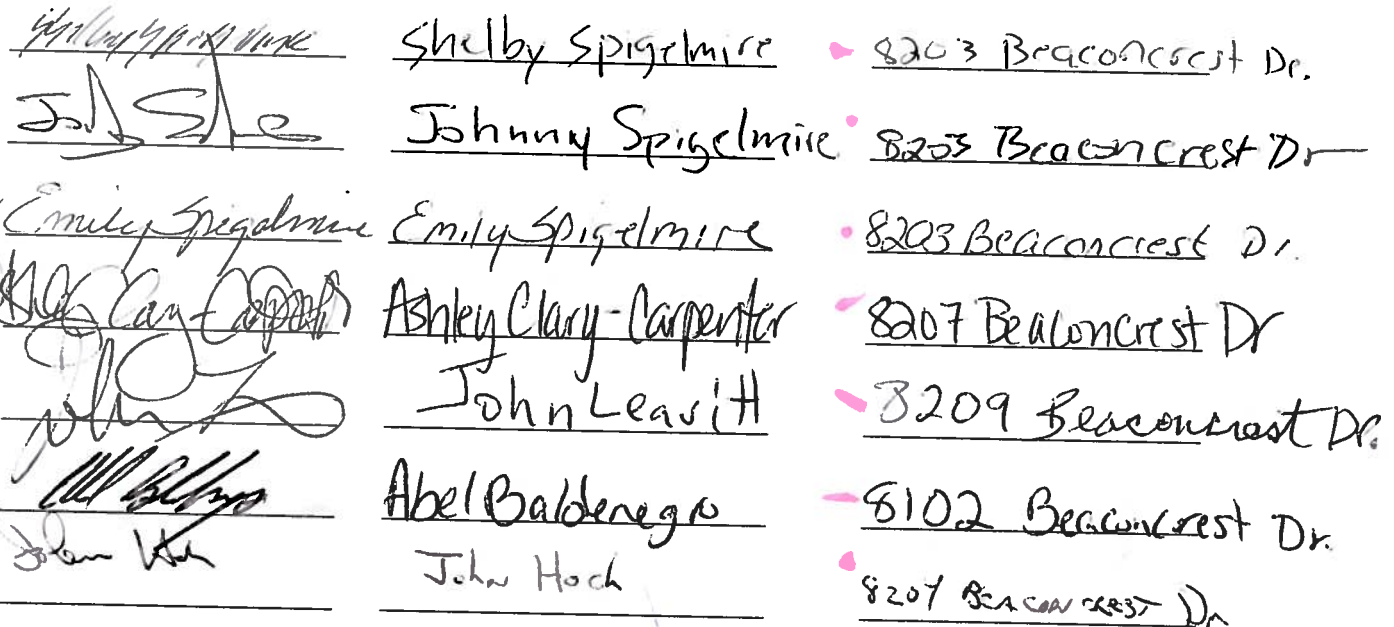 Shelby Spigelmire Shelby Spigelmire 8203 Beaconcrest Dr.
Johnny Spigelmire 8203 Beaconcrest Dr
Emily Spigelmire Emily Spigelmire 8203 Beaconcrest Dr.
Ashley Clary-Carpenter 8207 Beaconcrest Dr
John Leavitt 8209 Beaconcrest Dr.
Abel Baldenegro 8102 Beaconcrest Dr.
John Hoch 8207 BEACONCREST Dr